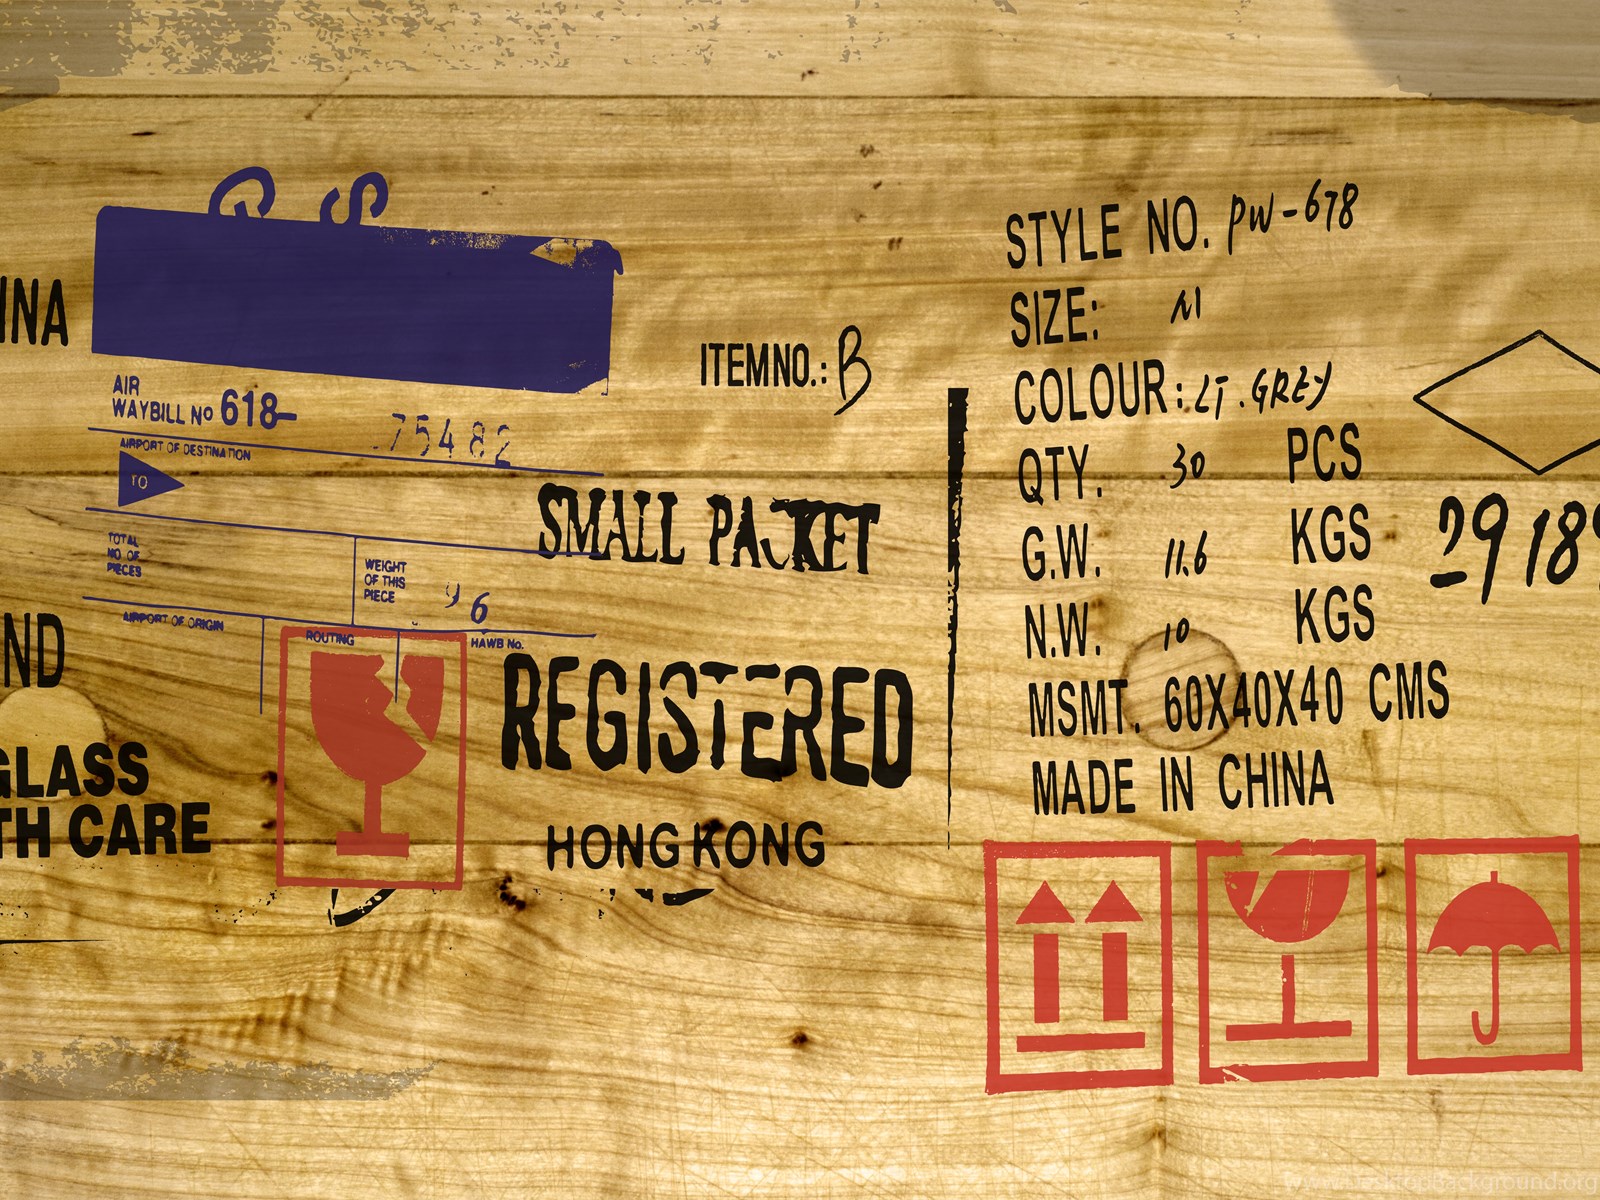 INA
AIR
WAYBILL No 618-
75482
AIRPORT OF DESTINATION
TO
TOTAL
NO OF
PIECES
WEIGHT
OF THIS
PIECE
96
AIRPORT OF ORIGIN
ROUTING
HAWB No.
ND
GLASS
TH CARE
ITEMNO.: B
SMALL PACKET
REGISTERED
HONG KONG
STYLE NO. PW-678
SIZE: M
COLOUR: LT. GREY
QTY. 30 PCS
G.W. 11.6 KGS
N.W. 10 KGS
MSMT. 60X40X40 CMS
MADE IN CHINA
29189
www.DesktopBackground.org